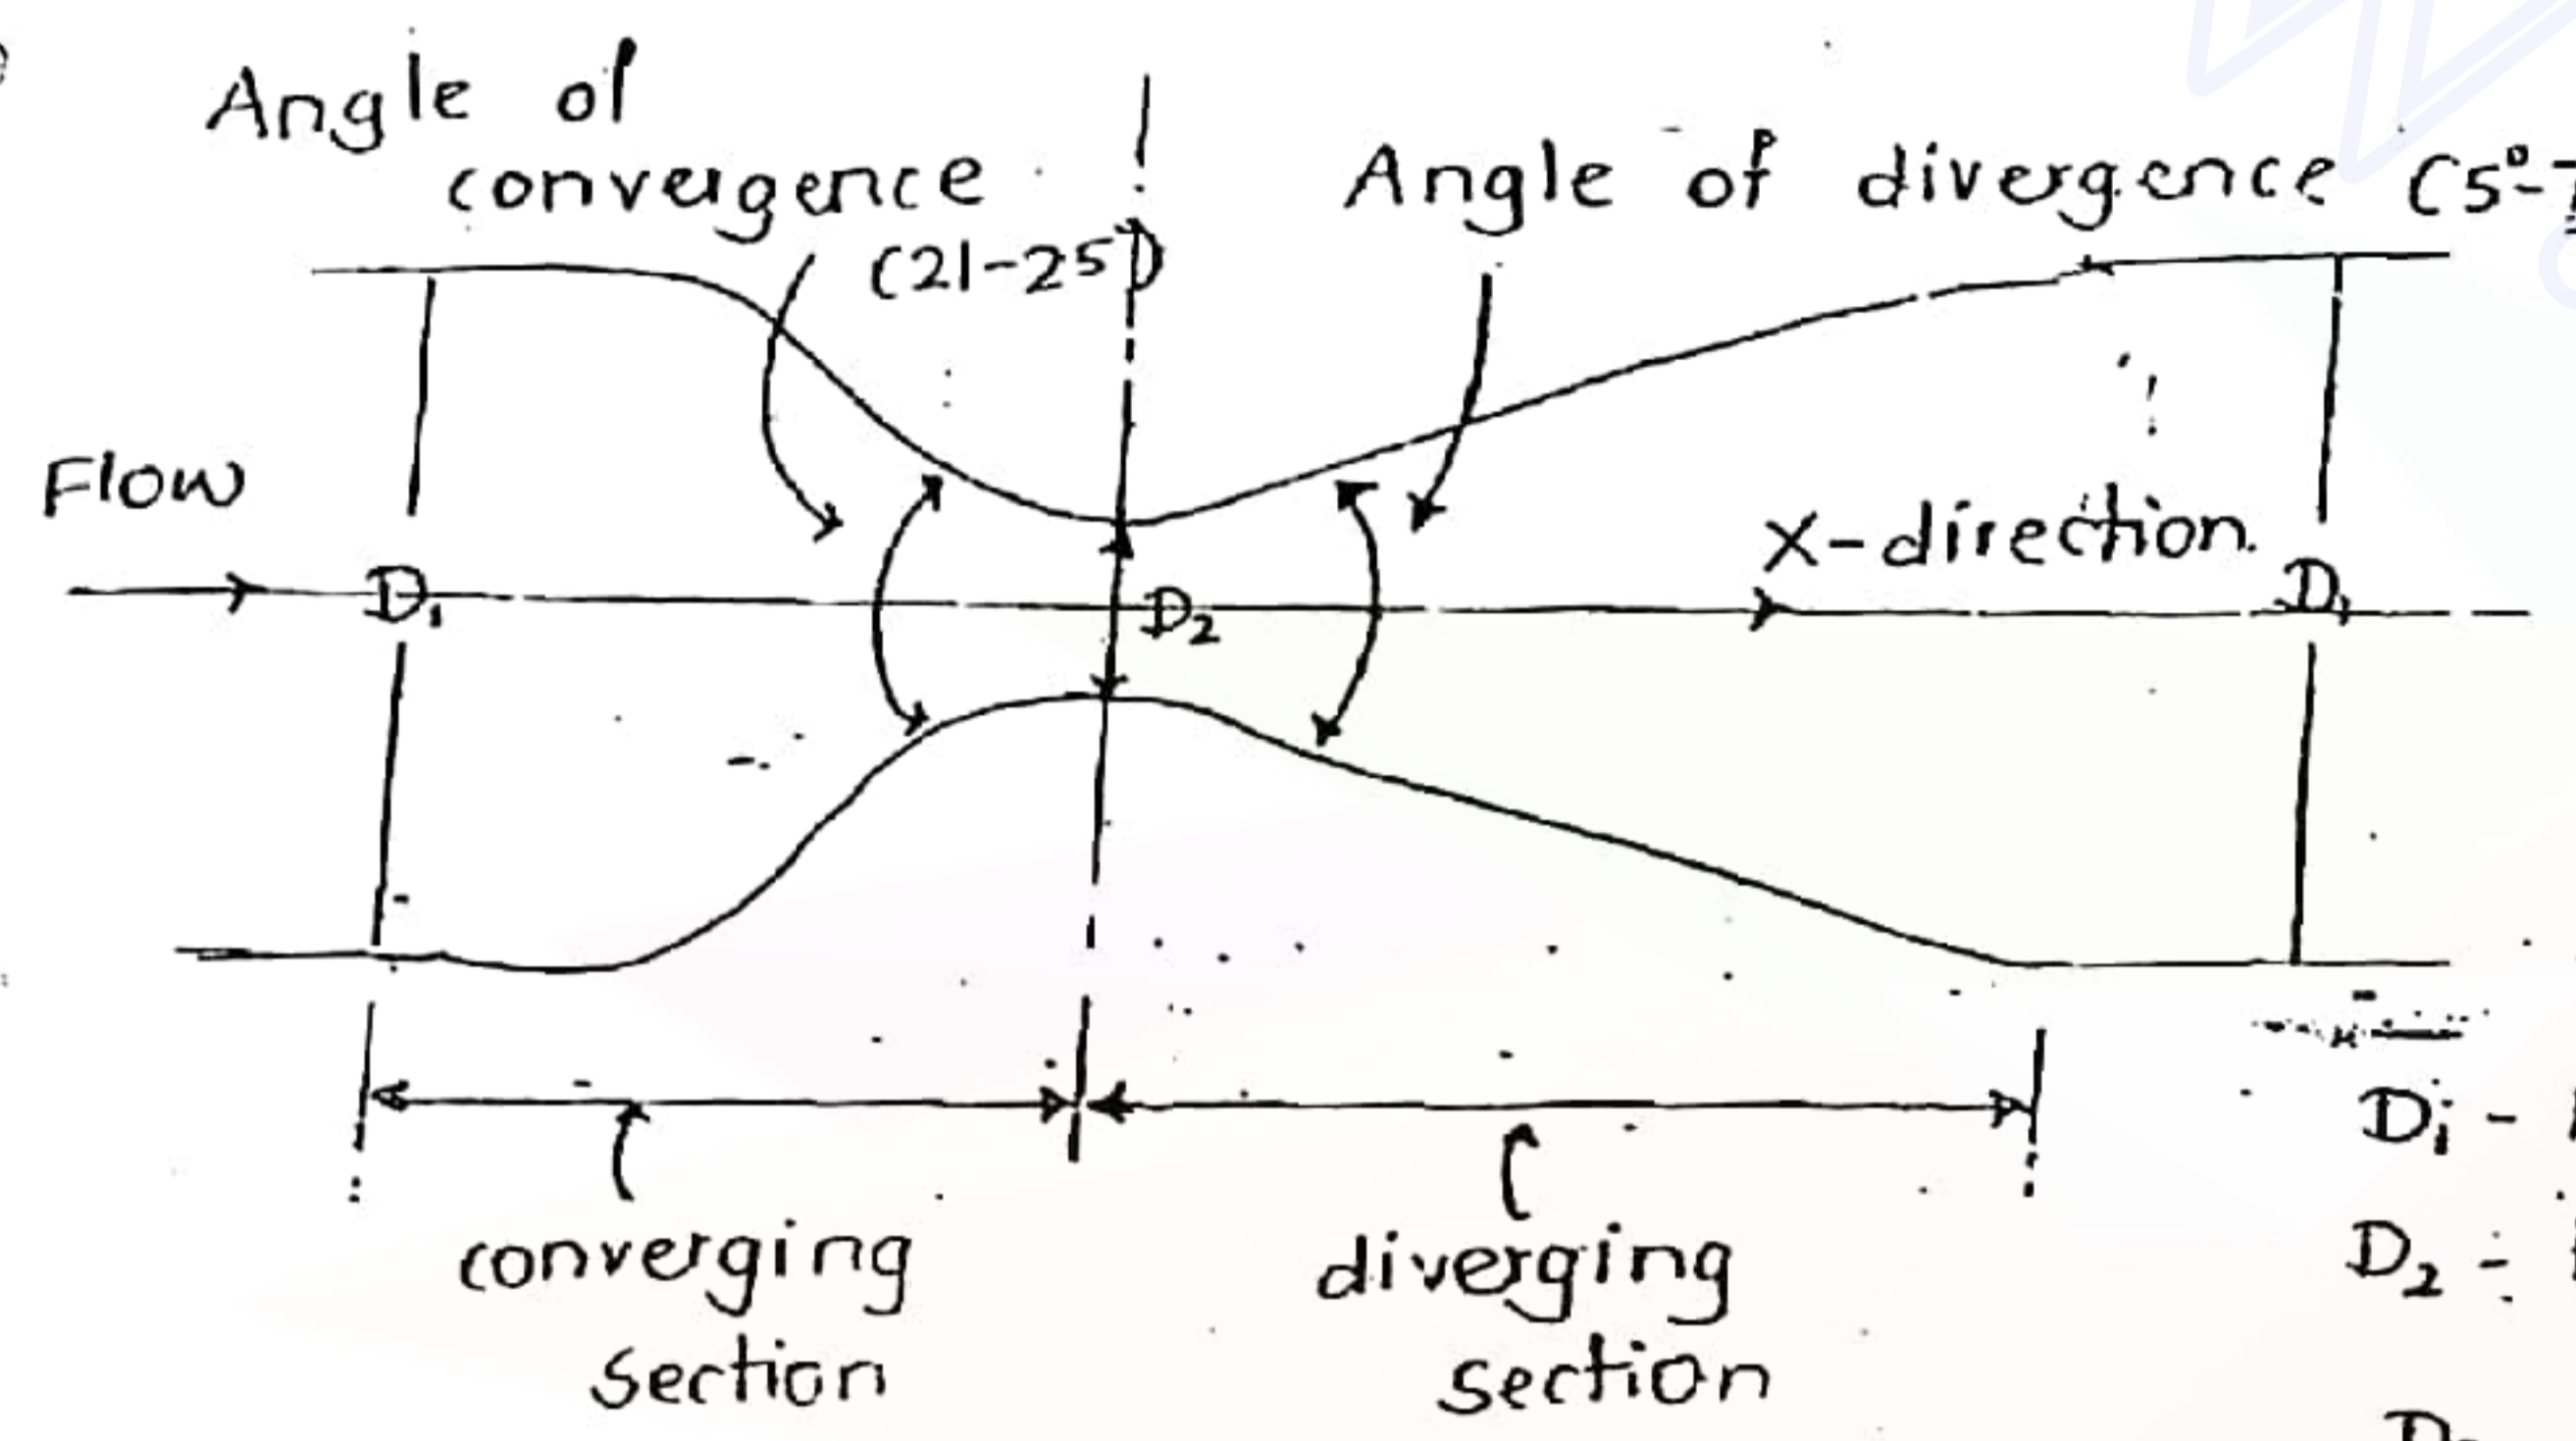 Angle of
convergence
(21-25°)
Angle of divergence (5°-7
Flow
X-direction.
D₁
D₂
D₁
converging
section
diverging
section
D₁ -
D₂ -